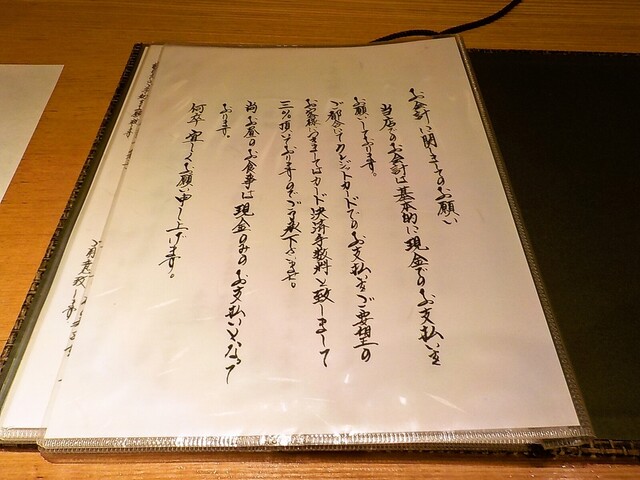 お会計に関しましてのお願い
当店でのお会計は基本的に現金でのお支払いを
お願いしております。
ご都合にてクレジットカードでのお支払をご要望の
お客様につきましてはカード決済手数料と致しまして
三%頂いておりますのでご了承下さいませ。
尚、お昼のお食事は現金のみのお支払いとなって
おります。
何卒宜しくお願い申し上げます。